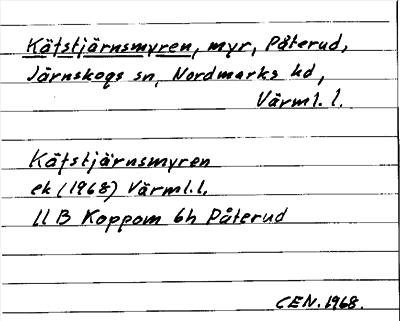 Kätstjärnsmyren, myr, Påterud,
Järnskogs sn, Nordmarks hd,
Värml. l.
Kätstjärnsmyren
ek (1968) Värml.l.
11 B Koppom 6h Påterud
CEN. 1968.